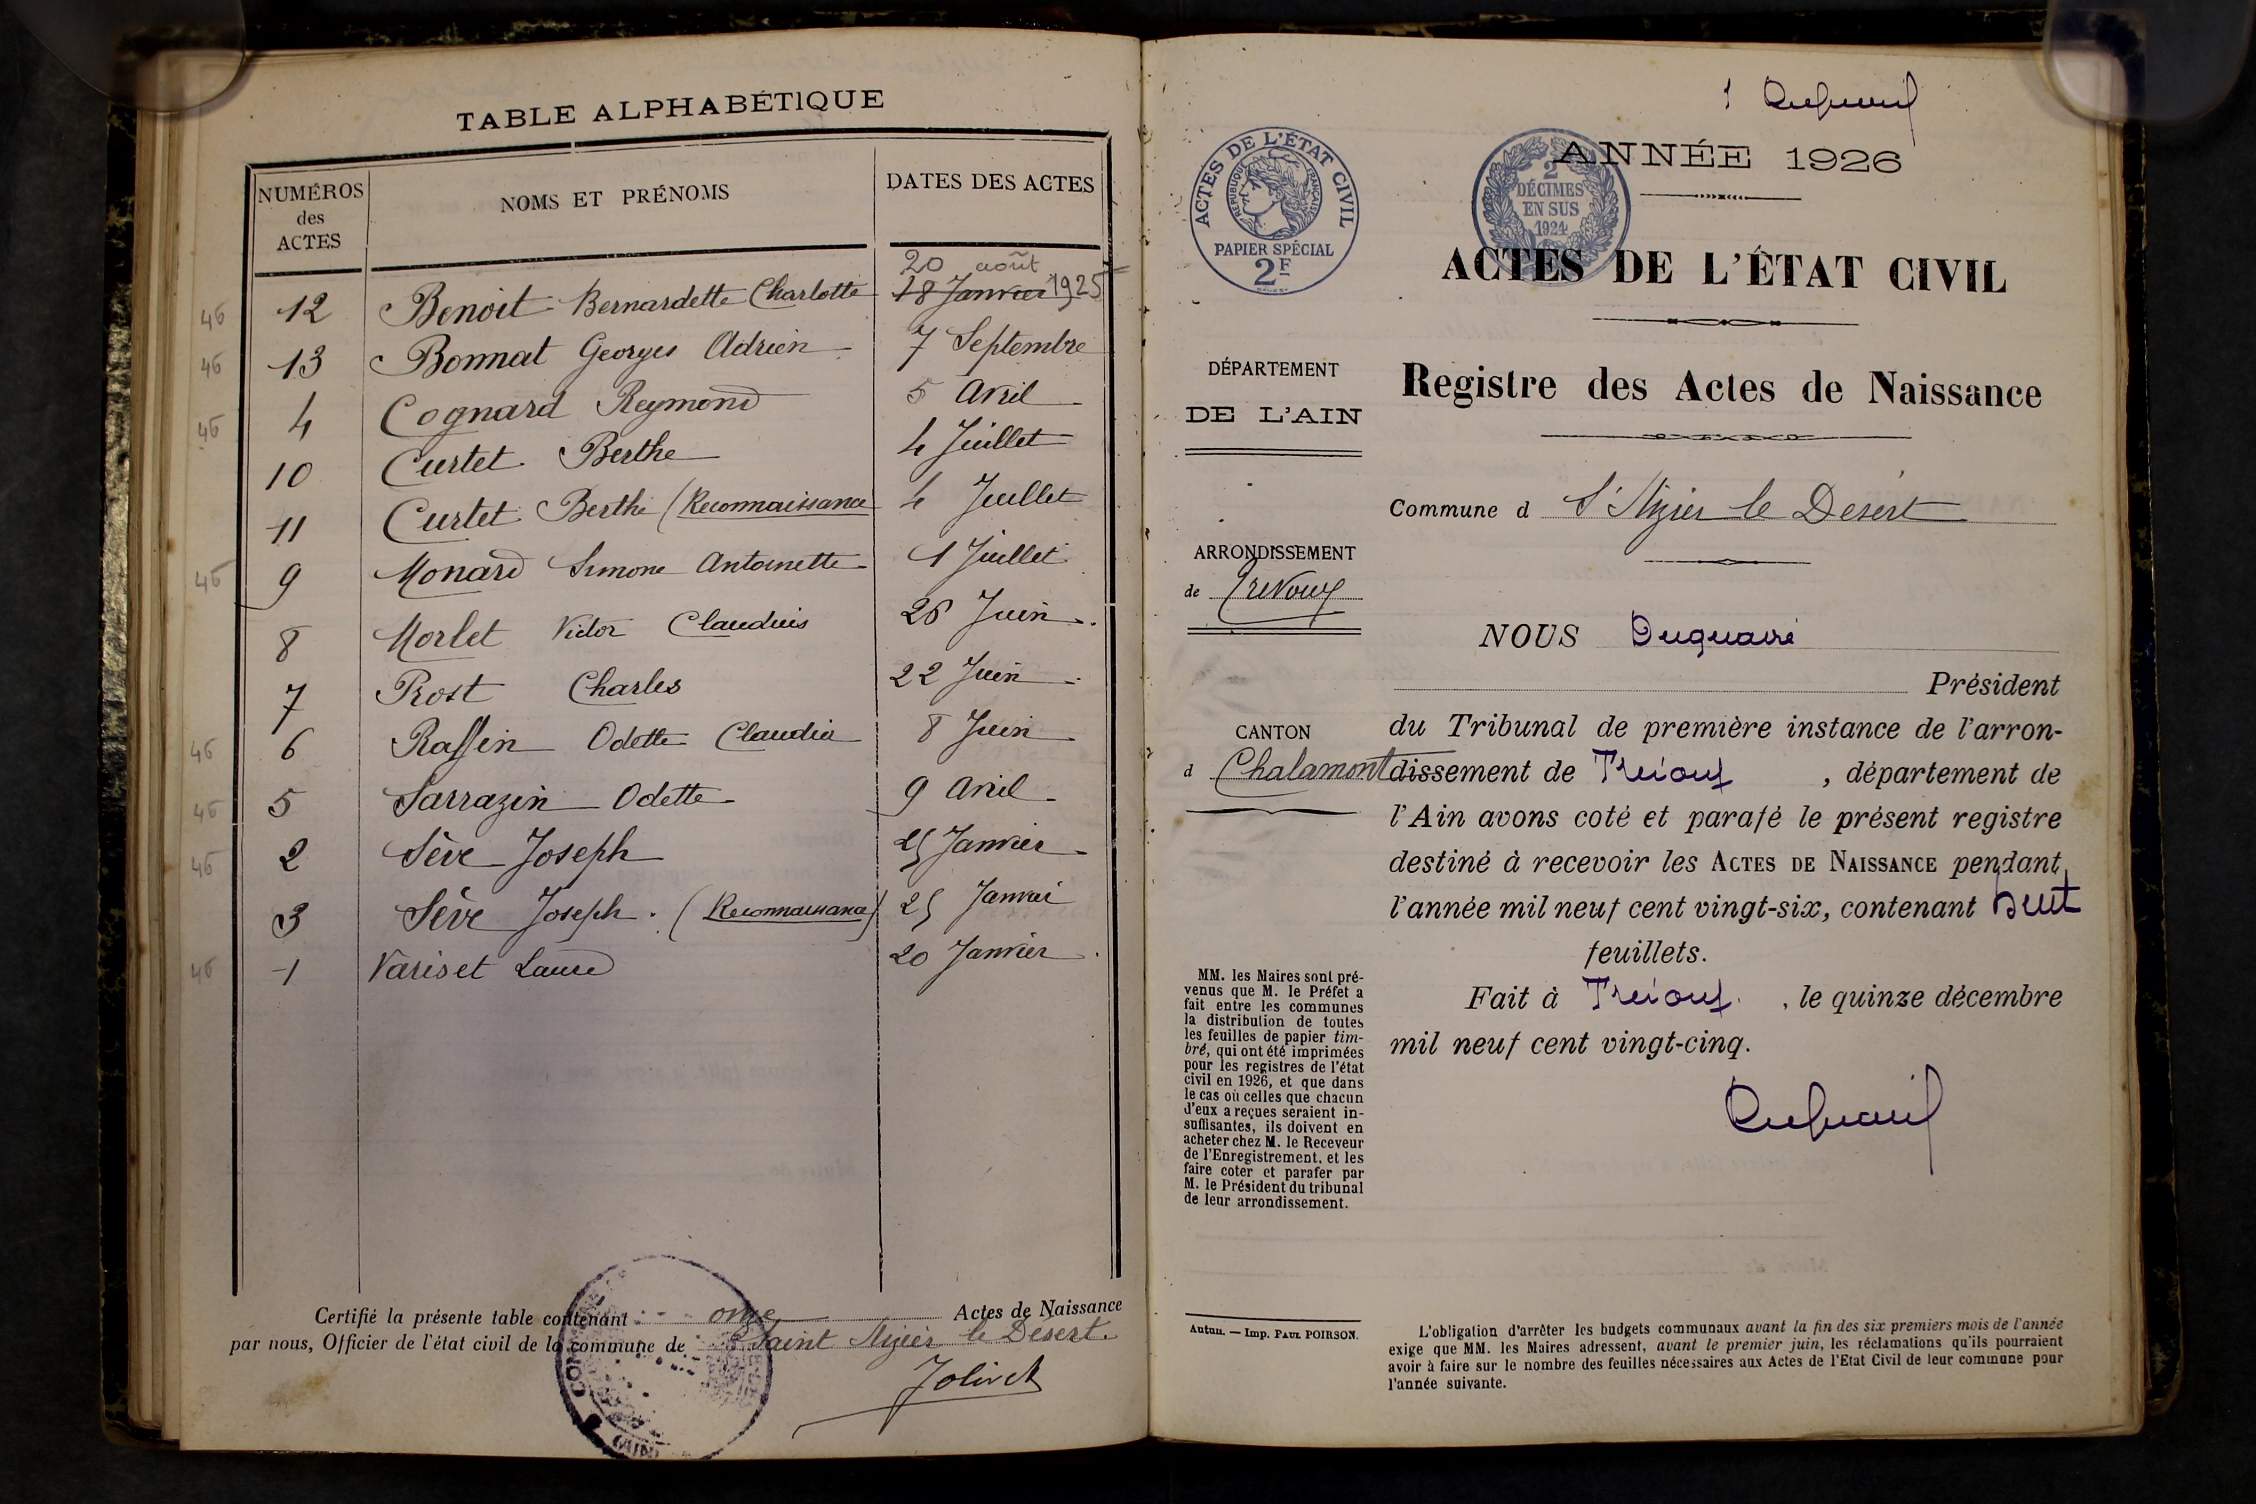 TABLE ALPHABÉTIQUE
NUMÉROS des ACTES NOMS ET PRÉNOMS DATES DES ACTES
20 août
46 12 Benoit Bernardette Charlotte 18 Janvier 1925
46 13 Bonnat Georges Adrien 7 Septembre
46 4 Cognard Reymond 5 Avril
10 Curtet Berthe 4 Juillet
11 Curtet Berthe (Reconnaissance 4 Juillet
46 9 Monard Simone Antoinette 1 Juillet
8 Morlet Victor Claudius 26 Juin
7 Prost Charles 22 Juin
46 6 Raffin Odette Claudia 8 Juin
46 5 Sarrazin Odette 9 Avril
46 2 Sève Joseph 25 Janvier
3 Sève Joseph. (Reconnaissance) 25 Janvier
46 1 Variset Laure 20 Janvier
Certifié la présente table contenant onze Actes de Naissance
par nous, Officier de l'état civil de la commune de Saint Nizier le Désert.
1
ACTES DE L'ÉTAT CIVIL
RÉPUBLIQUE FRANÇAISE
PAPIER SPÉCIAL
2F
2
DÉCIMES
EN SUS
1924
ANNÉE 1926
ACTES DE L'ÉTAT CIVIL
Registre des Actes de Naissance
DÉPARTEMENT
DE L'AIN
Commune d St Nizier le Désert
ARRONDISSEMENT
de Trévoux
CANTON
d Chalamont
NOUS Duquaire
Président
du Tribunal de première instance de l'arron-
dissement de Trévoux, département de
l'Ain avons coté et parafé le présent registre
destiné à recevoir les ACTES DE NAISSANCE pendant
l'année mil neuf cent vingt-six, contenant huit
feuillets.
Fait à Trévoux, le quinze décembre
mil neuf cent vingt-cinq.
MM. les Maires sont pré-
venus que M. le Préfet a
fait entre les communes
la distribution de toutes
les feuilles de papier tim-
bré, qui ont été imprimées
pour les registres de l'état
civil en 1926, et que dans
le cas où celles que chacun
d'eux a reçues seraient in-
suffisantes, ils doivent en
acheter chez M. le Receveur
de l'Enregistrement, et les
faire coter et parafer par
M. le Président du tribunal
de leur arrondissement.
Autun. — Imp. PAUL POIRSON.
L'obligation d'arrêter les budgets communaux avant la fin des six premiers mois de l'année
exige que MM. les Maires adressent, avant le premier juin, les réclamations qu'ils pourraient
avoir à faire sur le nombre des feuilles nécessaires aux Actes de l'Etat Civil de leur commune pour
l'année suivante.